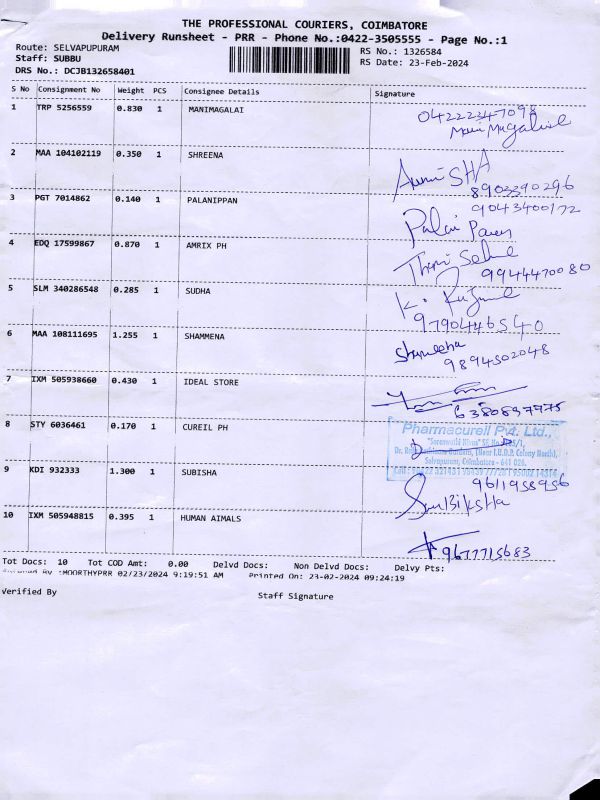 THE PROFESSIONAL COURIERS, COIMBATORE
Delivery Runsheet - PRR - Phone No.:0422-3505555 - Page No.:1
Route: SELVAPUPURAM
RS No.: 1326584
Staff: SUBBU
RS Date: 23-Feb-2024
DRS No.: DCJB132658401
S No Consignment No Weight PCS Consignee Details Signature
1 TRP 5256559 0.830 1 MANIMAGALAI
04222347098
2 MAA 104102119 0.350 1 SHREENA
8903390296
3 PGT 7014862 0.140 1 PALANIPPAN
9043400172
4 EDQ 17599867 0.870 1 AMRIX PH
9944470080
5 SLM 340286548 0.285 1 SUDHA
9790446540
6 MAA 108111695 1.255 1 SHAMMENA
9894502048
7 IXM 505938660 0.430 1 IDEAL STORE
6380897775
8 STY 6036461 0.170 1 CUREIL PH
Pharmacureil Pvt. Ltd.,
Selvapuram, Coimbatore - 641 026.
9 KDI 932333 1.300 1 SUBISHA
9611958956
SuBiksha
10 IXM 505948815 0.395 1 HUMAN AIMALS
9677715683
Tot Docs: 10 Tot COD Amt: 0.00 Delvd Docs: Non Delvd Docs: Delvy Pts:
:MOORTHYPRR 02/23/2024 9:19:51 AM Printed On: 23-02-2024 09:24:19
Verified By
Staff Signature